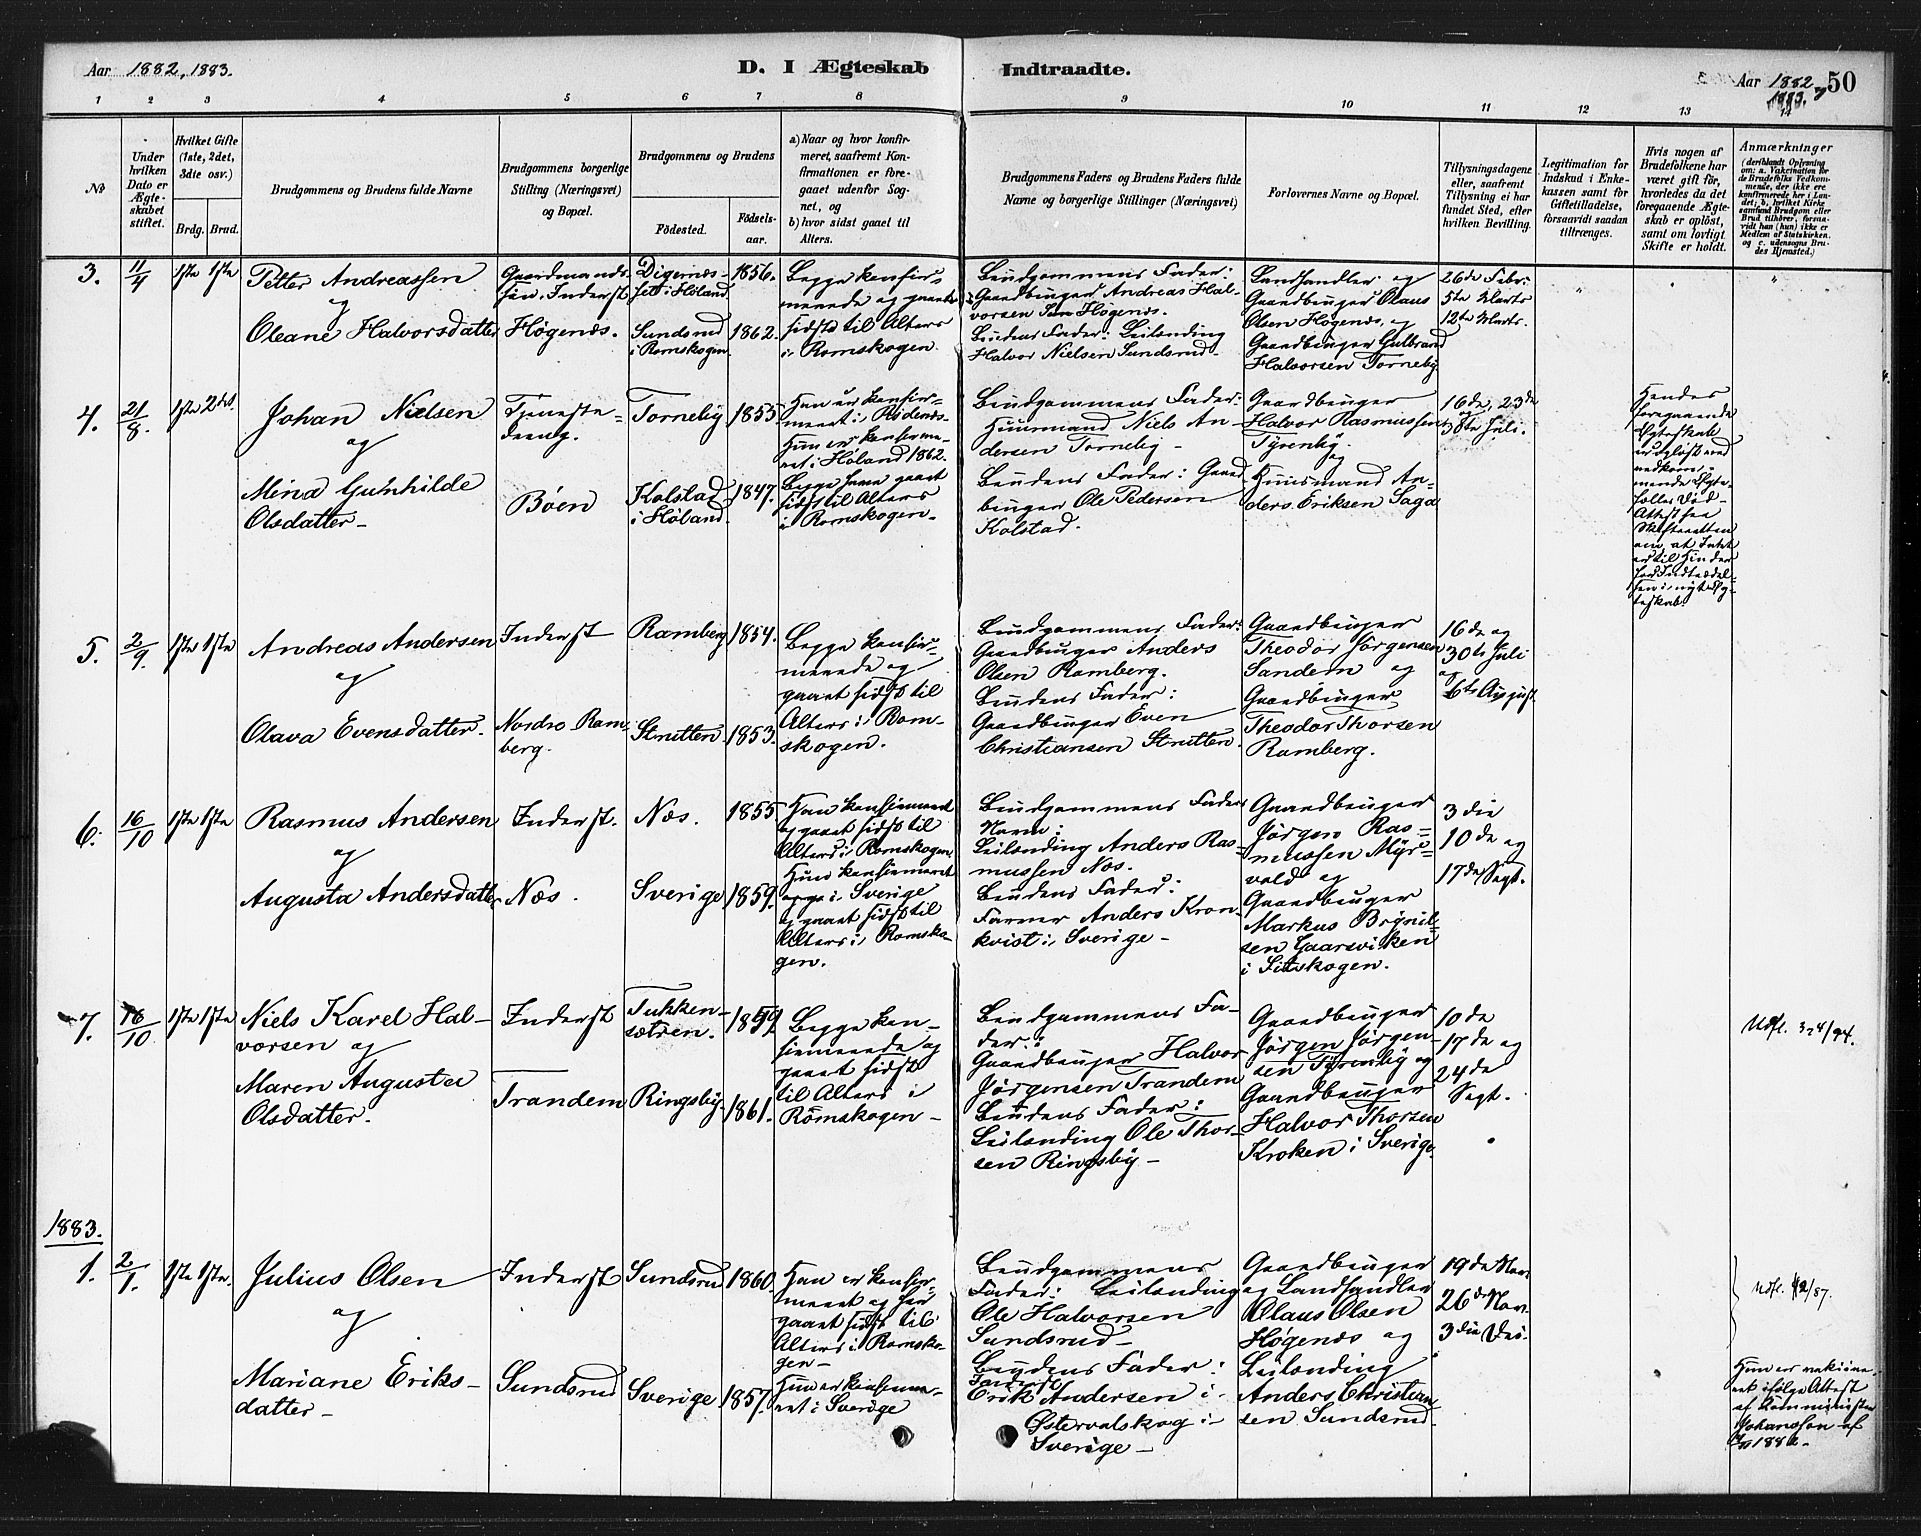 Aar 1882, 1883.
D. I Ægteskab
Indtraadte.
Aar 1882, 1883. 50
1 2 3 4 5 6 7 8 9 10 11 12 13 14
No
Under hvilken Dato er Ægteskabet stiftet.
Hvilket Gifte (1ste, 2det, 3die osv.)
Brdg. Brud.
Brudgommens og Brudens fulde Navne
Brudgommens borgerlige Stilling (Næringsvei) og Bopæl.
Brudgommens og Brudens
Fødested.
Fødselsaar.
a) Naar og hvor konfirmeret, saafremt Konfirmationen er foregaaet udenfor Sognet, og
b) hvor sidst gaaet til Alters.
Brudgommens Faders og Brudens Faders fulde Navne og borgerlige Stillinger (Næringsvei)
Forlovernes Navne og Bopæl.
Tillysningsdagene eller, saafremt Tillysning ei har fundet Sted, efter hvilken Bevilling.
Legitimation for Indskud i Enkekassen samt for Giftetilladelse, forsaavidt saadan tiltrænges.
Hvis nogen af Brudefolkene har været gift før, hvorledes da det foregaaende Ægteskab er opløst, samt om lovligt Skifte er holdt.
Anmærkninger
3. 11/4 1ste 1ste
Petter Andreassen
og
Oleane Halvorsdatter
Gaardmands-
søn. Inderst
Høgenæs.
Digernæs-
i Høland
Sundsrud
i Romskogen.
1856.
1862.
Begge konfir-
merede og gaaet
sidst til Alters
i Romskogen.
Brudgommens Fader:
Gaardbruger Andreas Hal-
vorsen Høgenæs.
Brudens Fader: Leilænding
Halvor Nielsen Sundsrud
Landhandler og
Gaardbruger Olaus
Olsen Høgenæs, og
Gaardbruger Gulbrand
Halvorsen Torneby
26de Febr:
5te Marts
12te Marts.
4. 21/8. 1ste 2det.
Johan Nielsen
og
Mina Gunhilde
Olsdatter
Tjeneste-
dreng.
Bøen
Torneby
Kolstad
i Høland.
1855
1847.
Han er konfir-
meret i Rødenæs.
Hun er konfirme-
ret i Høland 1862.
Begge have gaaet
sidst til Alters
i Romskogen.
Brudgommens Fader:
Huusmand Niels An-
dersen Torneby
Brudens Fader: Gaard
bruger Ole Pedersen
Kolstad.
Gaardbruger
Halvor Rasmussen
Tyrenby.
og
Huusmand An-
ders Eriksen Saga
16de, 23de
og
30te Juli.
Hendes
foregaaende
Ægteskab
er opløst ved
vedkom-
mende Ægte-
fælles Død
Attest fra
Skifteretten
om, at Intet
er til Hinder
for Indtrædel-
sen i nyt Æg-
teskab.
5. 2/9. 1ste 1ste
Andreas Andersen
og
Olava Evensdatter.
Inderst
Nordro Ram-
berg.
Ramberg
Strutten
1854.
1853.
Begge konfir-
merede og
gaaet sidst til
Alters i Rom-
skogen.
Brudgommens Fader:
Gaardbruger Anders
Olsen Ramberg.
Brudens Fader:
Gaardbruger Even
Christiansen Strutten.
Gaardbruger
Theodor Jørgensen
Sandem og
Gaardbruger
Theodor Thorsen
Ramberg.
16de og
30te Juli
og
6te August
6. 16/10 1ste 1ste
Rasmus Andersen
og
Augusta Andersdatter
Inderst.
Næs.
Næs.
Sverige
1855
1859.
Han konfirmeret
og gaaet sidst til
Alters i Romskogen.
Hun konfirmeret
i Sverige
og gaaet sidst til
Alters i Romsko-
gen.
Brudgommens Fader
Navn:
Leilænding Anders Ras-
mussen Næs.
Brudens Fader:
Farver Anders Kron-
kvist i Sverige
Gaardbruger
Jørgen Ras-
mussen Myr-
vold og
Gaardbruger
Markus Brynil-
sen Gaarsviken
i Sitskogen.
3die
10de og
17de Sept.
7. 16/10 1ste 1ste
Niels Karel Hal-
vorsen og
Maren Augusta
Olsdatter.
Inderst
Trandem
Tukken-
sætren.
Ringsby.
1859
1861.
Begge kon-
firmerede og
gaaet sidst
til Alters i
Römskogen
Brudgommens Fa-
der:
Gaardbruger Halvor
Jørgensen Trandem
Brudens Fader:
Leilænding Ole Thor-
sen Ringsby
Gaardbruger
Jørgen Jørgen-
sen Tyrenby og
Gaardbruger
Halvor Thorsen
Kroken i Sverige.
10de
17de og
24de
Sept.
1883.
1. 2/1. 1ste 1ste.
Julius Olsen
og
Mariane Eriks-
datter
Inderst
Sundsrud
Sundsrud
Sverige
1860.
1857.
Han er konfir-
meret og har
gaaet sidst til
Alters i Romsko-
gen
Hun er konfirme-
ret i Sverige
Brudgommens
Fader: Leilænding
Ole Halvorsen
Sundsrud
Brudens Fader:
Erik Andersen i
Østervalskog i
Sverige
Gaardbruger
og Landhandler
Olaus Olsen
Høgenæs og
Leilænding
Anders Christian
sen Sundsrud.
19de Nov.
26de Nov.
3die Dec.
Hun er vakcine-
ret ifølge Attest
af
Johansson af